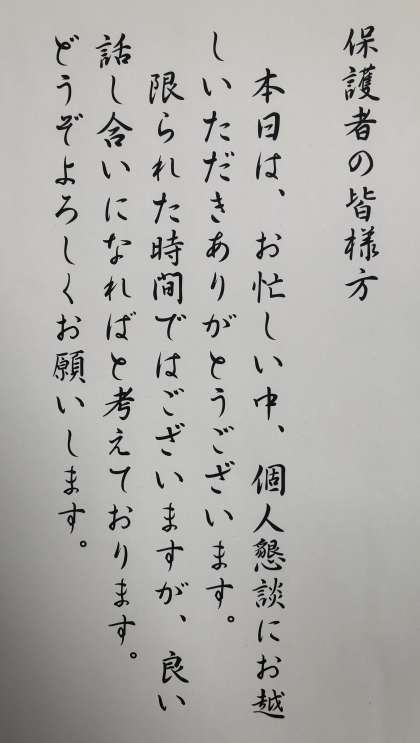 保護者の皆様方
本日は、お忙しい中、個人懇談にお越
しいただきありがとうございます。
限られた時間ではございますが、良い
話し合いになればと考えております。
どうぞよろしくお願いします。